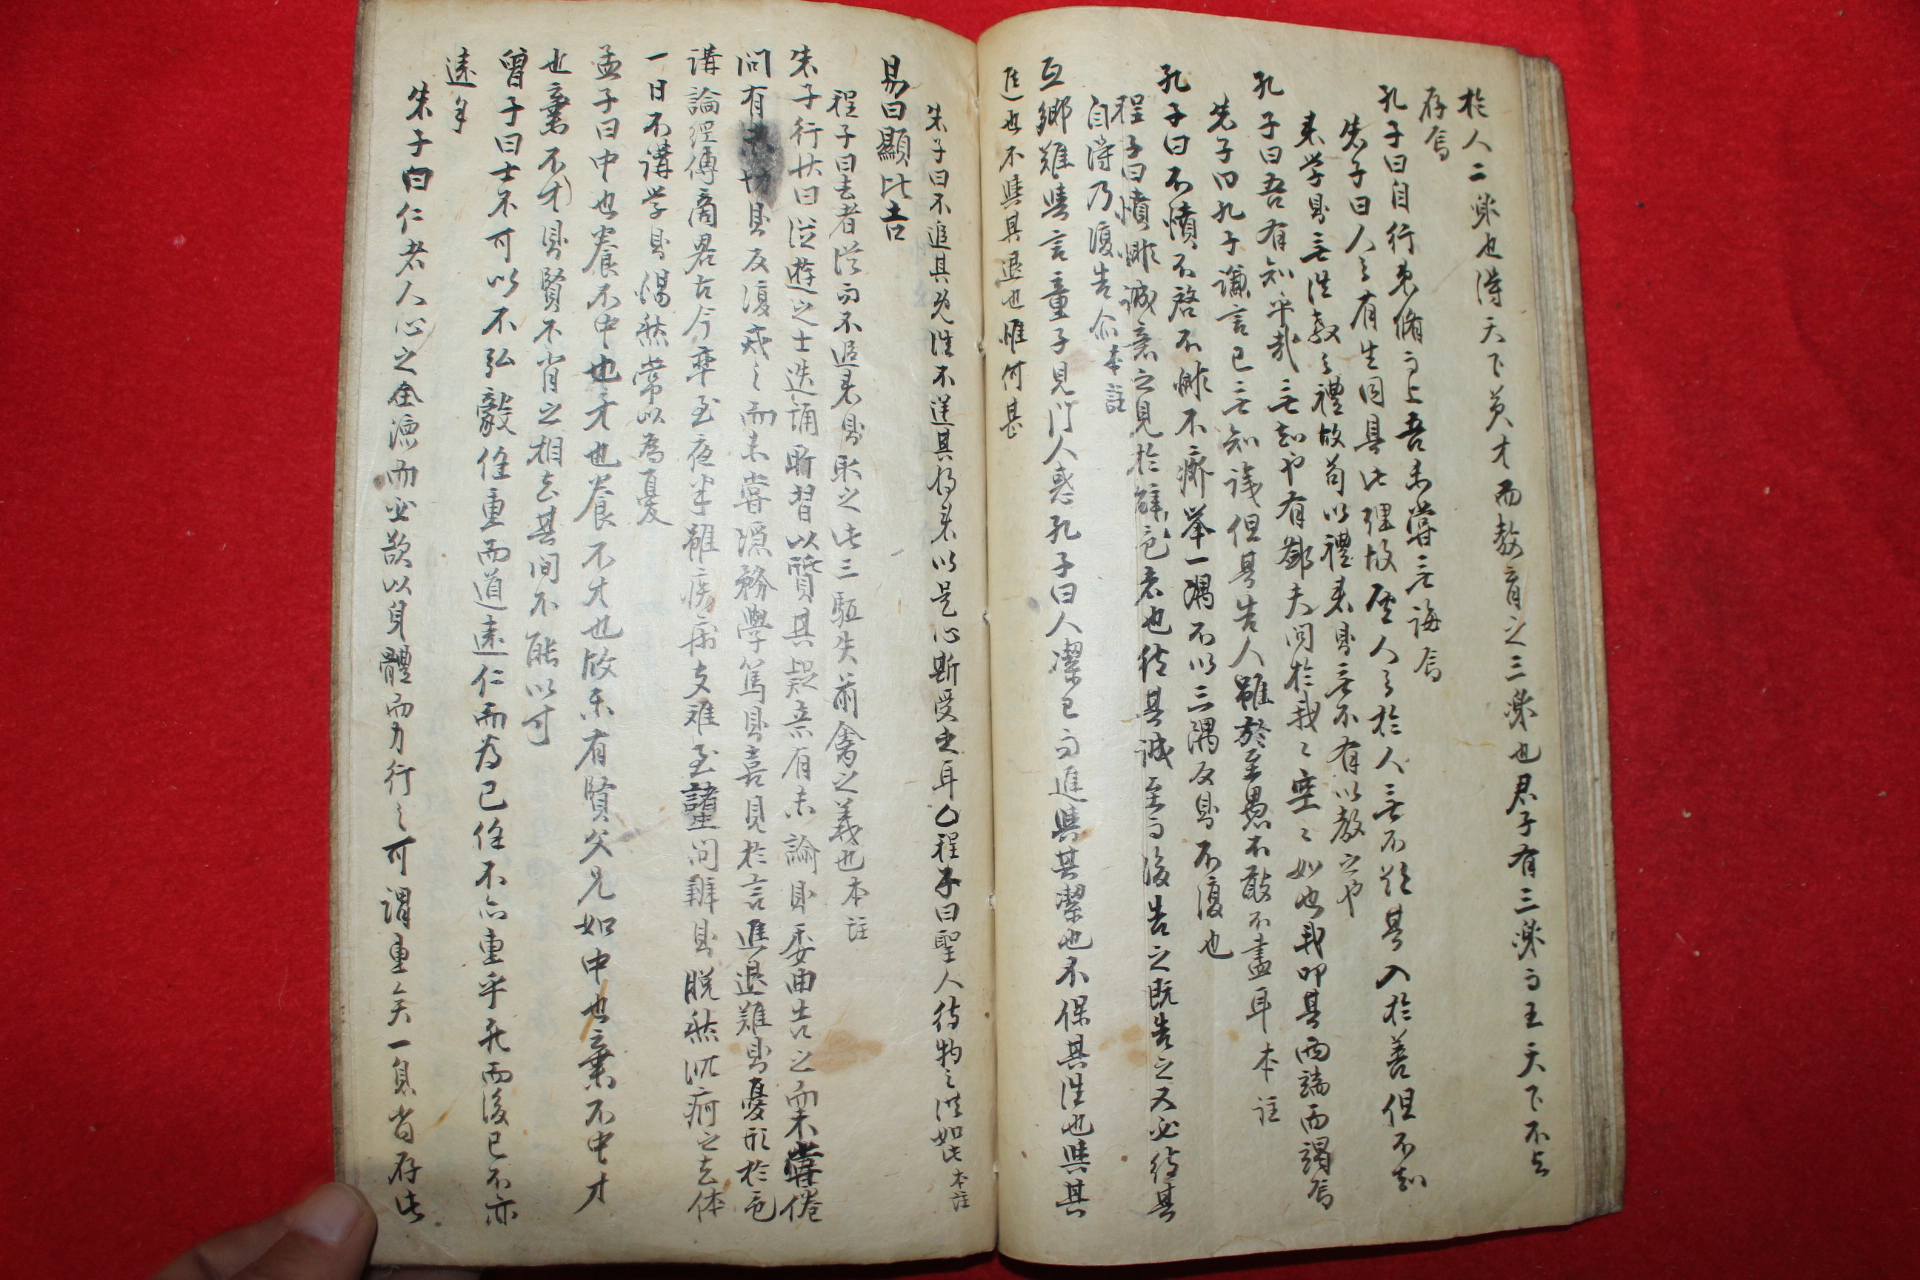 於人二樂也得天下英才而教育之三樂也君子有三樂而王天下不与
存焉
孔子曰自行束脩而上吾未嘗无誨焉
朱子曰人之有生同具此理故聖人之於人无不欲其入於善但不知
来学則无往教之禮故苟以禮来則无不有以教之也
孔子曰吾有知乎哉无知也有鄙夫問於我〻空〻如也我叩其両端而竭焉
朱子曰孔子謙言己无知識但其告人雖於至愚不敢不盡耳 本註
孔子曰不憤不啓不悱不發举一隅不以三隅反則不復也
程子曰憤悱誠意之見於辞色者也待其誠至而後告之既告之又必待其
自得乃復告尒 本註
互郷難與言童子見门人惑孔子曰人潔己而進與其潔也不保其往也與其
進也不與其退也惟何甚
朱子曰不追其既往不逆其将来以是心斯受之耳〇程子曰聖人待物之洪如此 本註
易曰顯比吉
程子曰去者従而不追来則取之此三驅失前禽之義也 本註
朱子行状曰従遊之士迭誦所習以質其疑意有未諭則委曲告之而未嘗倦
問有未切則反復戒之而未嘗隠務學篤則喜見於言進道難則憂形於色
講論経傳商畧古今率至夜半雖疾病支離至諸生問辨則脱然沉痾之去体
一日不講学則惕然常以為憂
孟子曰中也養不中也才也養不才也故樂有賢父兄如中也棄不中才
也棄不才則賢不肖之相去其間不能以寸
曾子曰士不可以不弘毅任重而道遠仁而为己任不亦重乎死而後已不亦
遠乎
朱子曰仁者人心之全德而必欲以身體而力行之可謂重矣一息尚存此